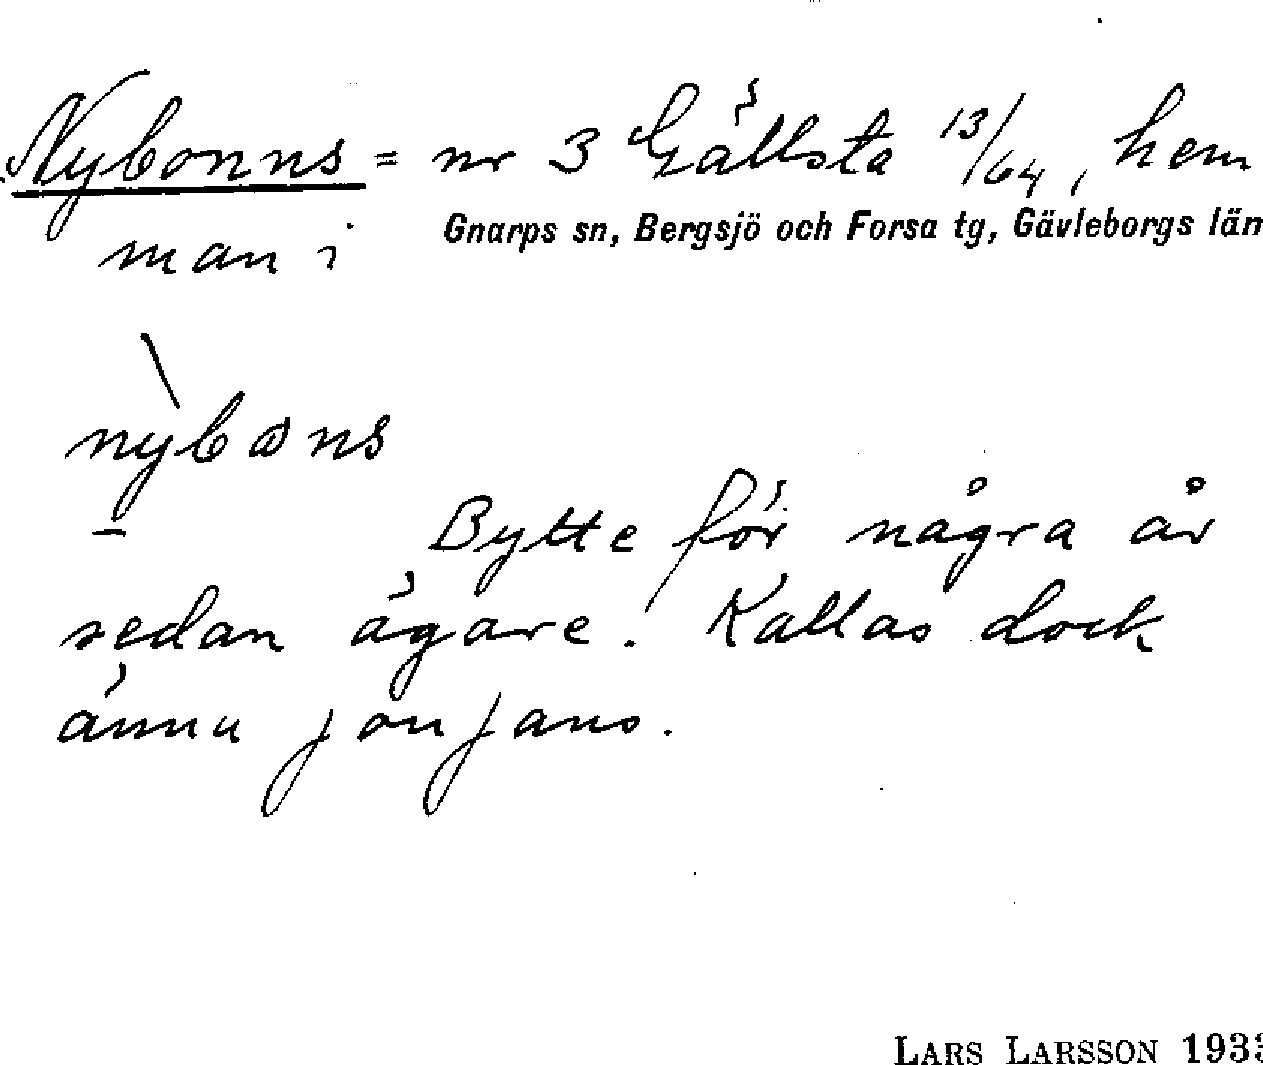 Nybonns = nr 3 Gällsta 13/64, hem
man i Gnarps sn, Bergsjö och Forsa tg, Gävleborgs län
nybωns
Bytte för några år
sedan ägare. Kallas dock
ännu jonjans.
LARS LARSSON 1933